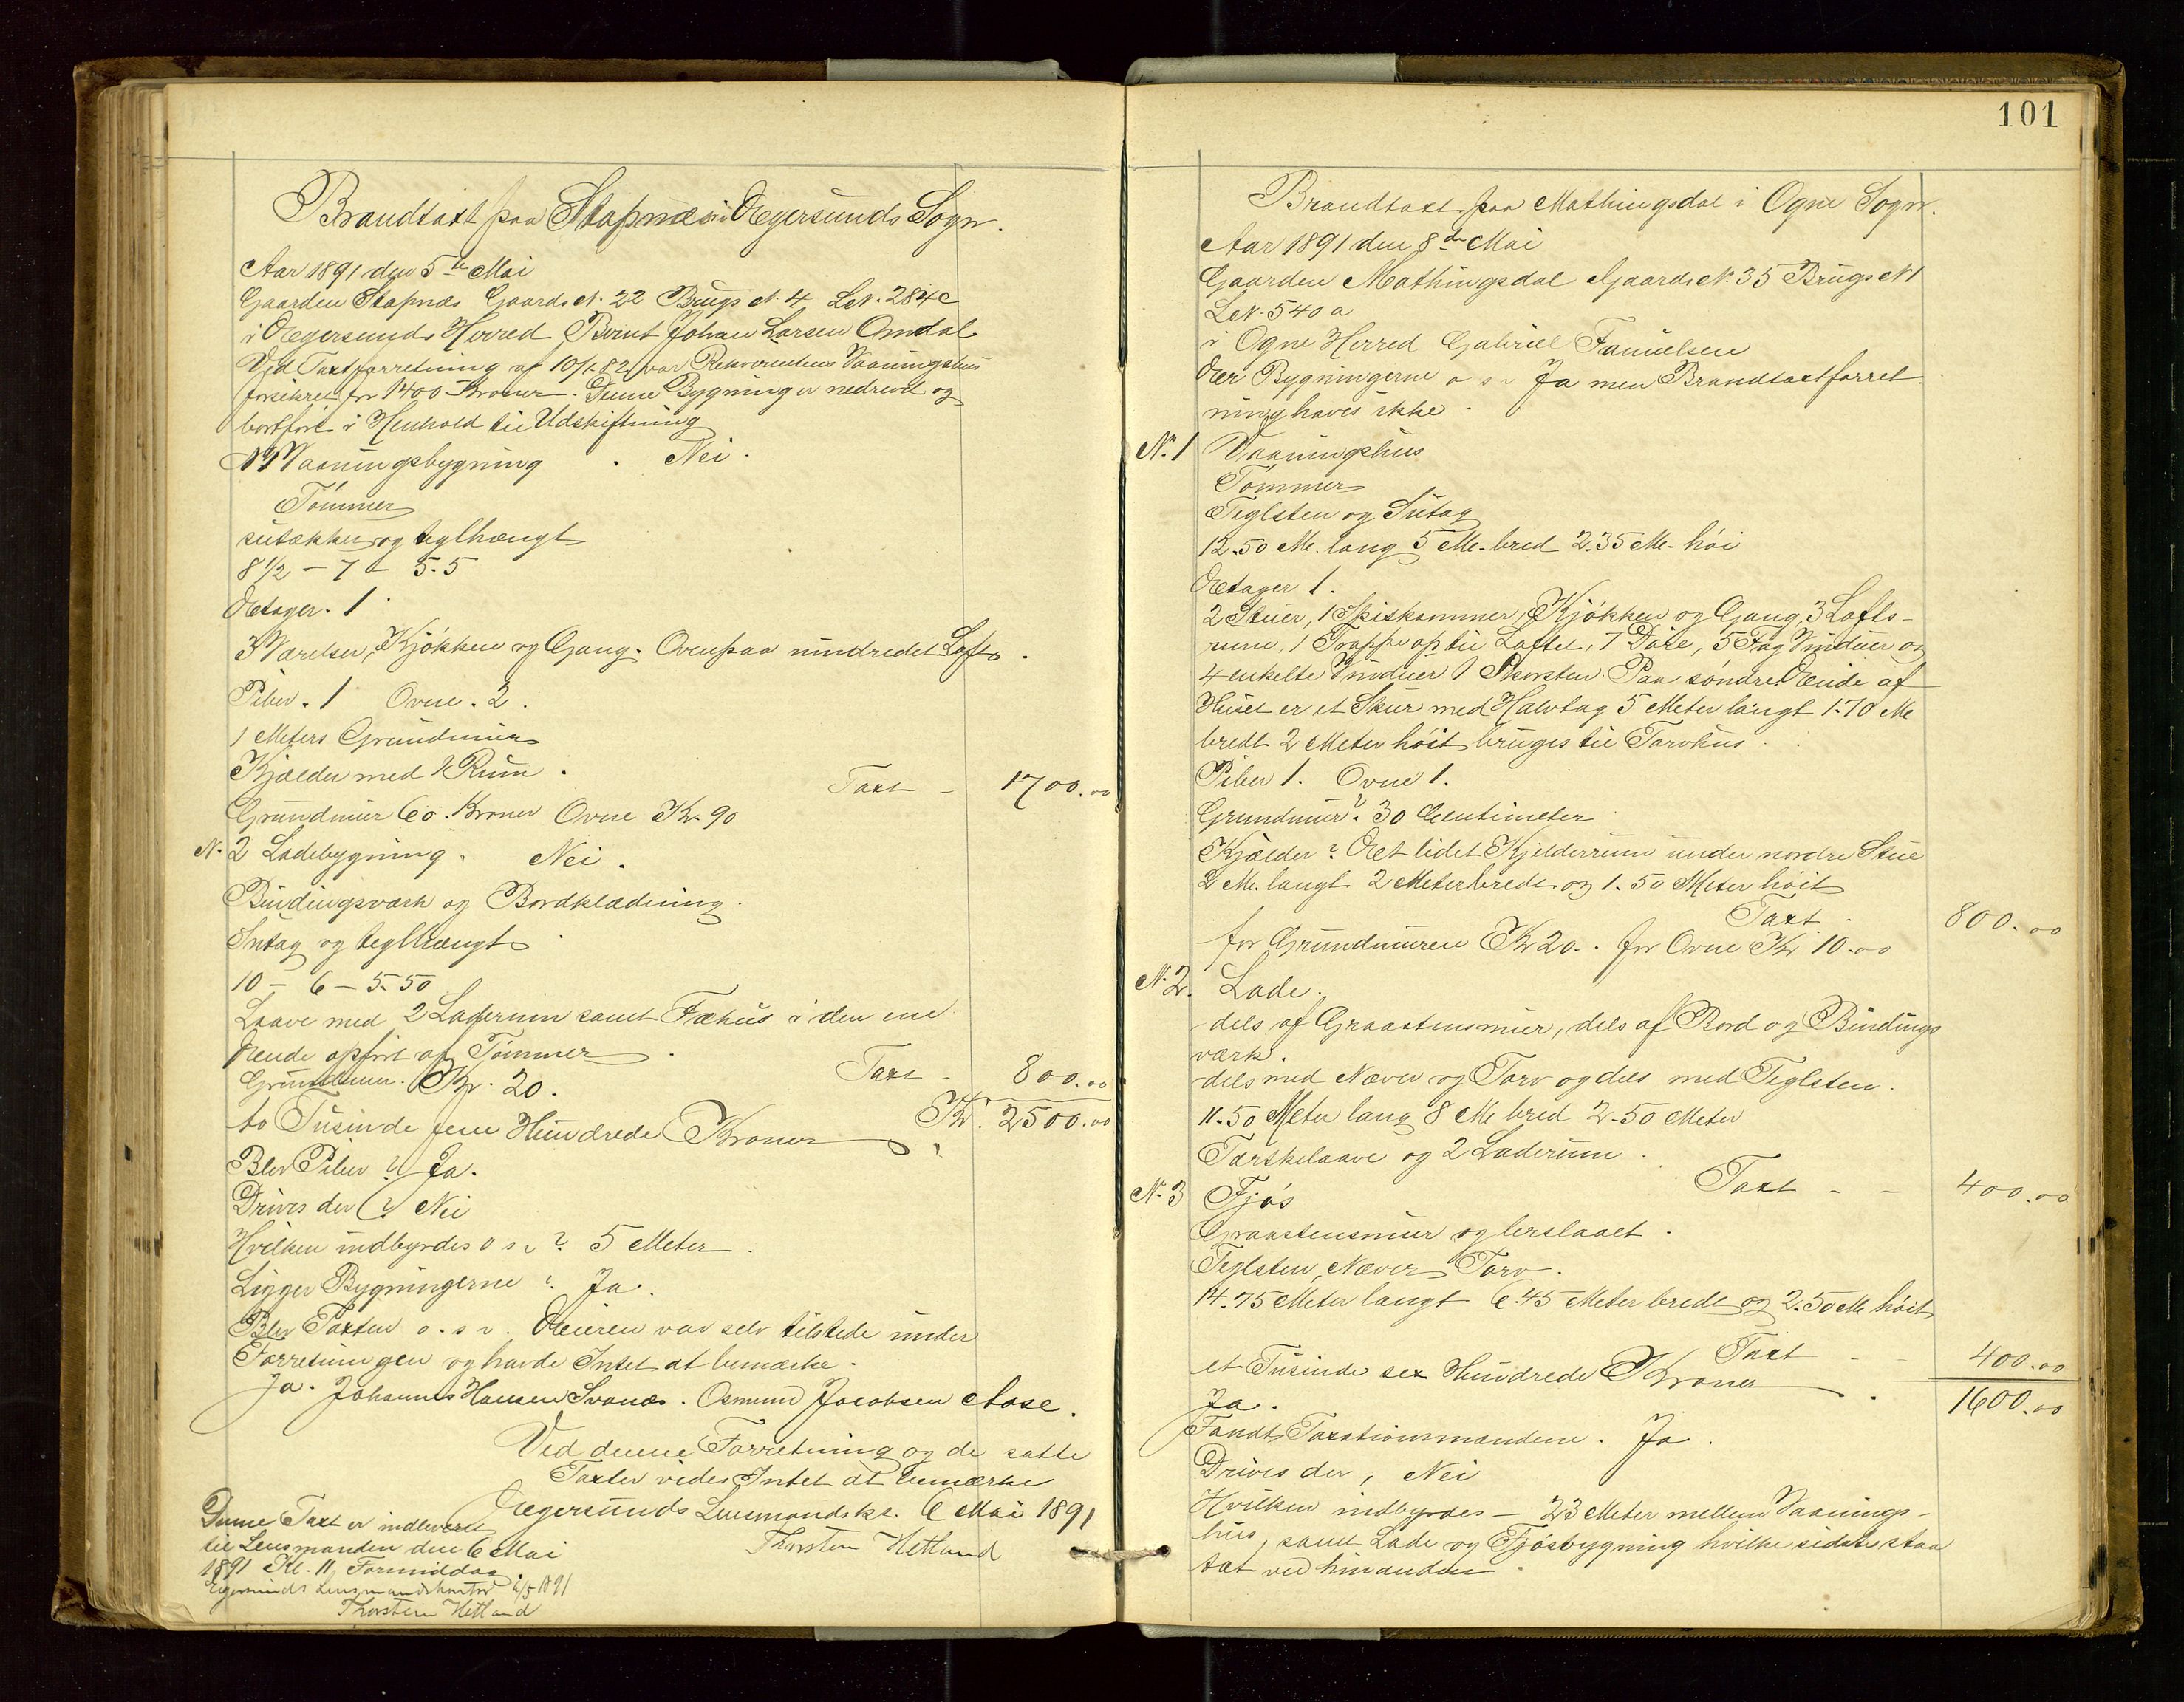 Brandtaxt paa Stapnæs i Ægersunds Sogn.
Aar 1891 den 5te Mai
Gaarden Stapnæs Gaards N. 22 Brugs N. 4 LN. 284c
i Ægersunds Herred Bernt Johan Larsen Omdal
Ved Taxtforretning af 10/1-82 var Rekvirentens Vaaningshus
forsikret for 1400 Kroner. Denne Bygning er nedrevet og
bortført i Henhold til Udskiftning
N1 Vaaningsbygning . Nei.
Tømmer
sutækket og teglhængt
8 1/2 - 7 - 5.5
Ætager. 1
3 Værelser, Kjøkken og Gang. Ovenpaa uindredet Loft.
Piber. 1 Ovne. 2.
1 Meters Grundmur
Kjælder med 1 Rum.
Taxt - 1700.00
Grundmur 60 Kroner Ovne Kr. 90
N. 2 Ladebygning. Nei.
Bindingsværk og Bordklædning.
Sutag og teglhængt.
10 - 6 - 5.50
Laave med 2 Laderum samt Fæhus i den ene
Ænde opført af Tømmer.
Taxt - 800.00
Grundmur. Kr. 20.
to Tusinde fem Hundrede Kroner Kr. 2500.00
Blev Piber ? Ja.
Drives der ? Nei
Hvilken indbyrdes o s v ? 5 Meter.
Ligger Bygningerne ? Ja.
Blev Taxten o. s v. Eieren var selv tilstede under
Forretningen og havde Intet at bemærke.
Ja. Johannes Hansen Svanæs. Osmund Jacobsen Aase.
Ved denne Forretning og de satte
Taxter vides Intet at bemærke
Ægersunds Lensmandskt. 6 Mai 1891
Thorsten Hetland
Denne Taxt er indleveret
til Lensmanden den 6 Mai
1891 Kl. 11 Formiddag.
Egersunds Lensmandskontor 6/5 1891
Thorstein Hetland
101
Brandtaxt paa Mathingsdal i Ogne Sogn.
Aar 1891 den 8de Mai
Gaarden Mathingsdal Gaards N. 35 Brugs N 1
LN. 540 a
i Ogne Herred Gabriel
Er Bygningerne o s v Ja men Brandtaxtforret
ning haves ikke.
N. 1 Vaaningshus
Tømmer
Teglsten og Sutag
12.50 M. lang 5 M. bred 2.35 M. høi
Ætager 1.
2 Stuer, 1 Spiskammer, Kjøkken og Gang, 3 Lofts-
rum, 1 Trappe op til Loftet, 7 Døre, 5 Fag Vinduer og
4 enkelte Vinduer 1 Skorsten. Paa søndre Ænde af
Huset er et Skur med Halvtag 5 Meter langt 1.70 M
bredt 2 Meter høit bruges til Torvhus.
Piber 1. Ovne 1.
Grundmur? 30 Centimeter
Kjælder? Et lidet Kjelderrum under nordre Stue
2 M. langt 2 Meter bredt og 1.50 Meter høit
Taxt. 800.00
for Grundmuren Kr 20. for Ovne Kr 10.00
N. 2. Lade.
dels af Graastensmur, dels af Bord og Bindings
værk.
dels med Næver og Torv og dels med Teglsten.
11.50 Meter lang 8 M bred 2.50 Meter
Tærskelaave og 2 Laderum.
Taxt - - 400.00
N. 3 Fjøs
Graastensmur og lerslaaet.
Teglsten, Næver Torv.
14.75 Meter langt 6.45 Meter bredt og 2.50 M høit
Taxt - - 400.00
et Tusinde sex Hundrede Kroner. 1600.00
Ja.
Fandt Taxationsmændene. Ja.
Drives der, Nei
Hvilken indbyrdes - 23 Meter mellem Vaanings-
hus, samt Lade og Fjøsbygning hvilke sidste staa
tæt ved hinanden.